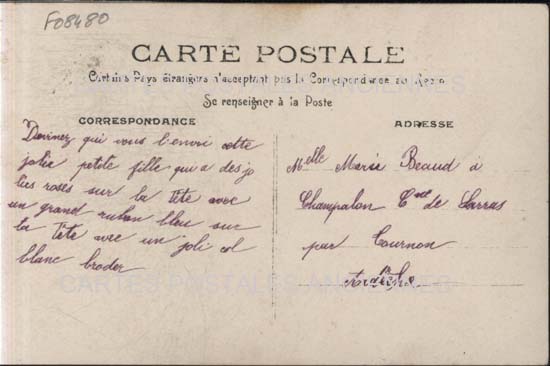 F08480
CARTE POSTALE
Certains Pays étrangers n'acceptent pas la Correspondance au Recto
Se renseigner à la Poste
CORRESPONDANCE
ADRESSE
Devinez qui vous l'envoi cette
jolie petite fille qui a des jo
lies roses sur la tête avec
un grand ruban bleu sur
la tête avec un joli col
blanc broder
Melle Marie Beaud à
Champalon Cne de Sarras
par Tournon
Ardèche
CARTES POSTALES ANCIENNES
CARTES POSTALES ANCIENNES